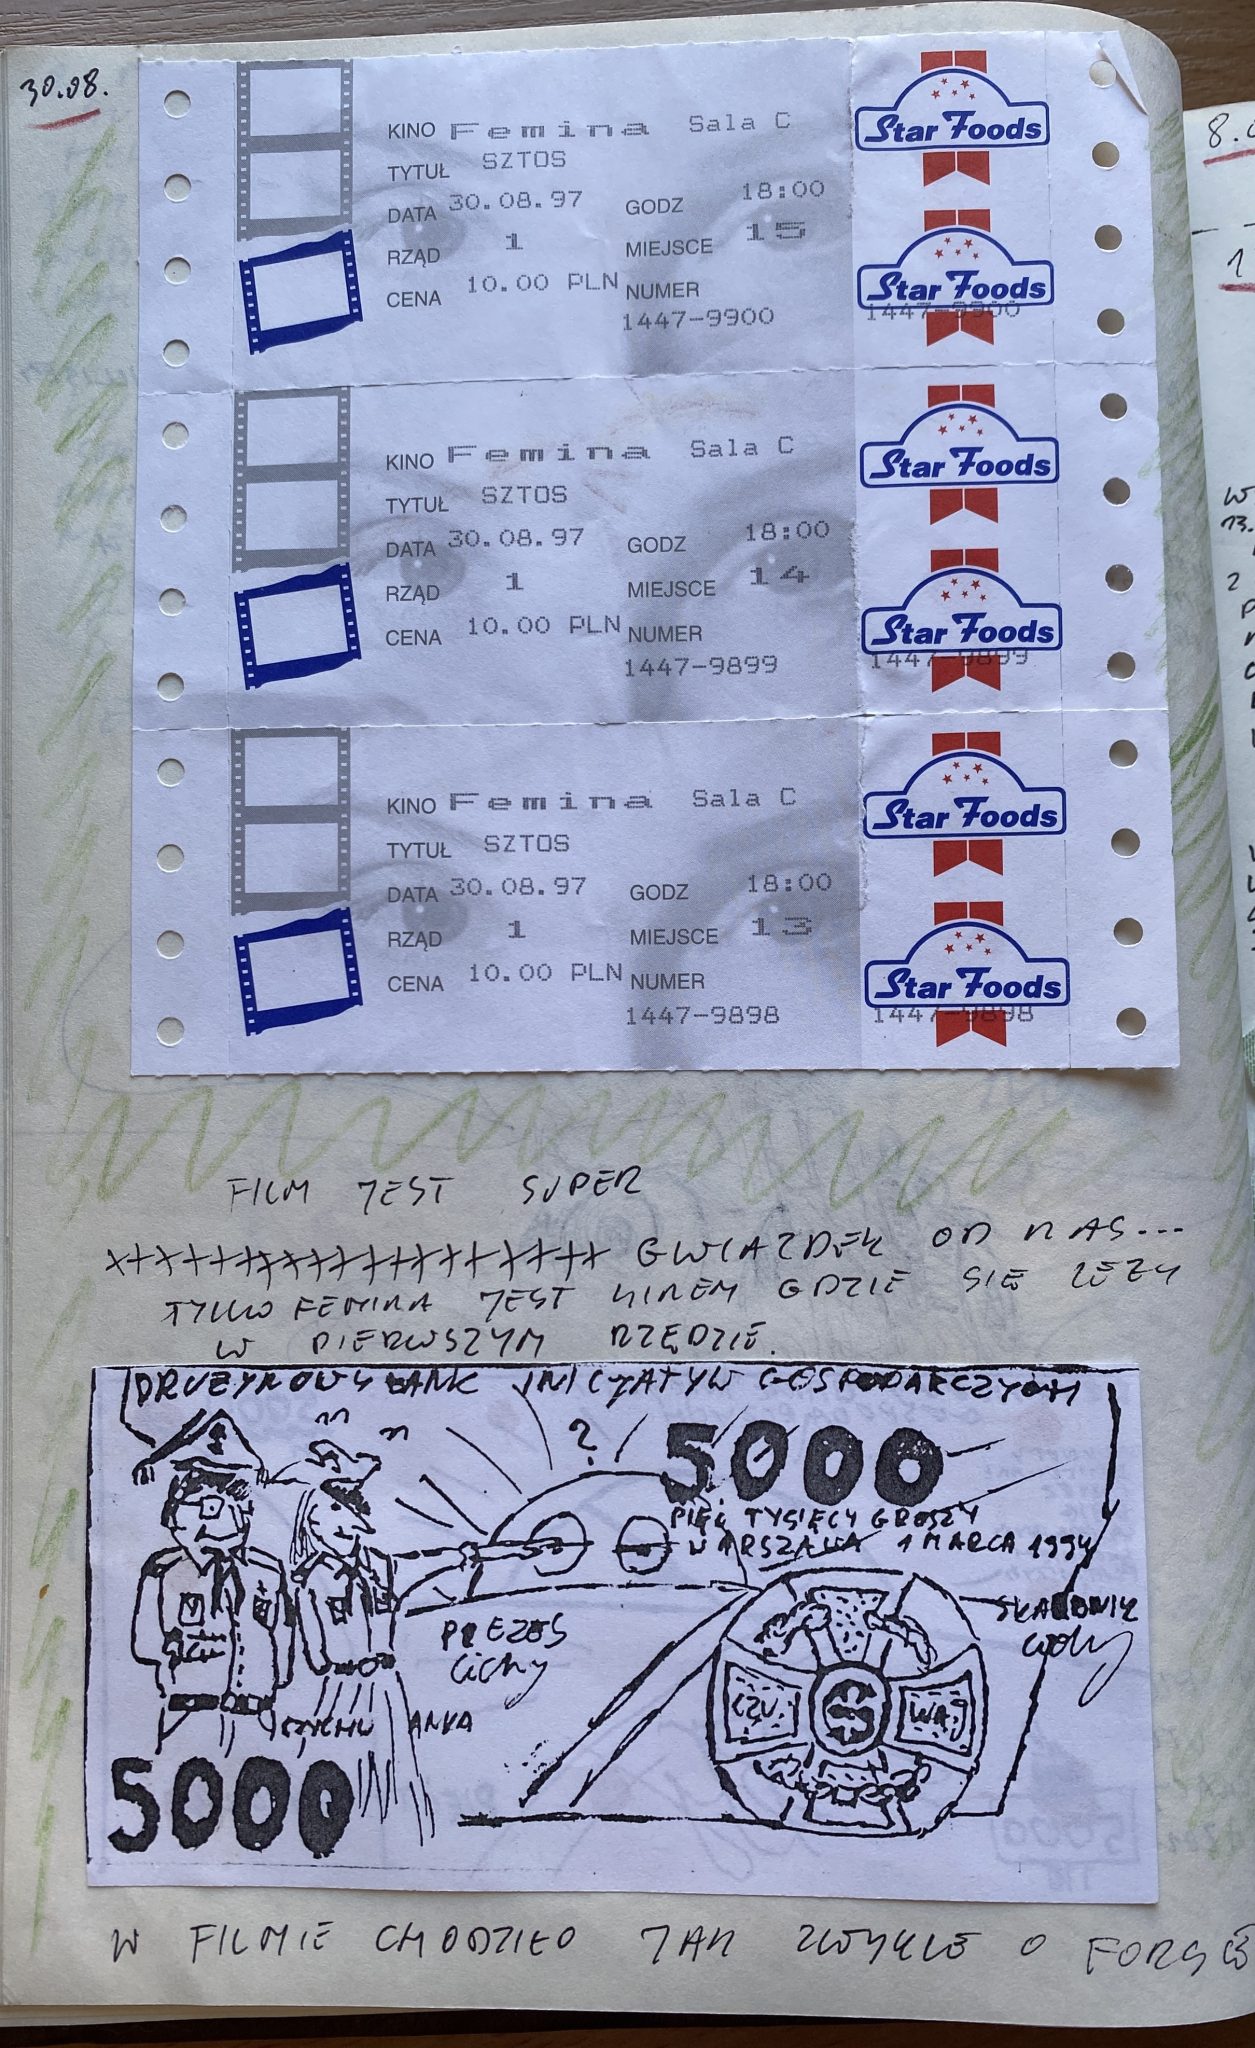 30.08.
KINO Femina Sala C
TYTUŁ SZTOS
DATA 30.08.97 GODZ 18:00
RZĄD 1 MIEJSCE 15
CENA 10.00 PLN NUMER
1447-9900
Star Foods
Star Foods
1447-9900
KINO Femina Sala C
TYTUŁ SZTOS
DATA 30.08.97 GODZ 18:00
RZĄD 1 MIEJSCE 14
CENA 10.00 PLN NUMER
1447-9899
Star Foods
Star Foods
1447-9899
KINO Femina Sala C
TYTUŁ SZTOS
DATA 30.08.97 GODZ 18:00
RZĄD 1 MIEJSCE 13
CENA 10.00 PLN NUMER
1447-9898
Star Foods
Star Foods
1447-9898
FILM JEST SUPER
GWIAZDEK OD NAS...
TYLKO FEMINA JEST KINEM GDZIE SIĘ LEŻY
W PIERWSZYM RZĘDZIE.
DRUŻYNOWY BANK INICJATYW GOSPODARCZYCH
?
5000
PIĘĆ TYSIĘCY GROSZY
WARSZAWA 1 MARCA 1994
PREZES
Cichy
SKARBNIK
CZU. $ WAJ
ANKA
5000
W FILMIE CHODZIŁO JAK ZWYKLE O FORSĘ
8.
1